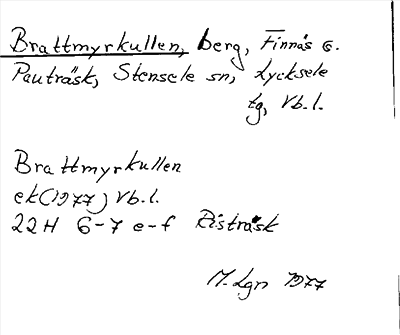 Brattmyrkullen, berg, Finnås g.
Pauträsk, Stensele sn, Lycksele
tg, Vb.l.
Brattmyrkullen
ek(1977) Vb.l.
22H 6-7 e-f Risträsk
M.Lgn 1977